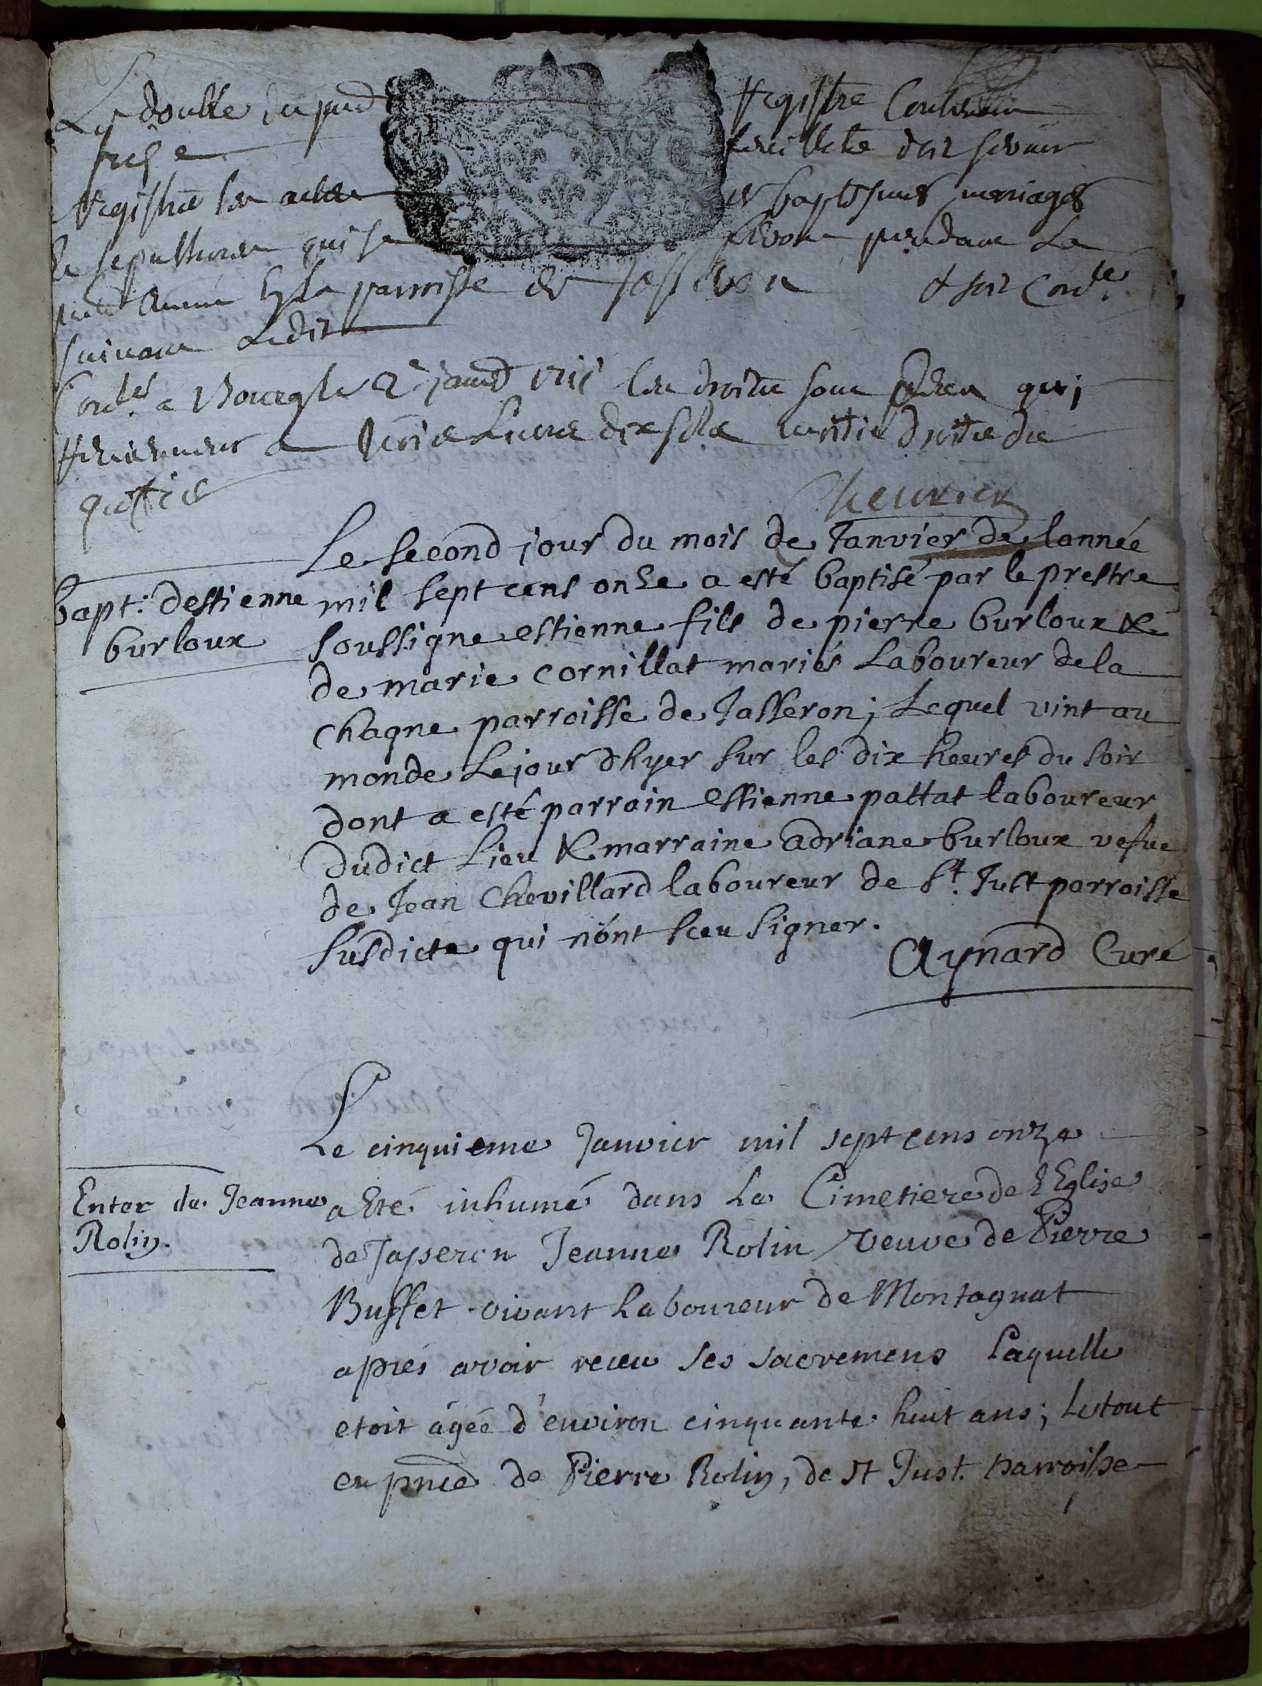 Le double du pnt Registre Contenant
seize feuillets doit servir
Registre les actes de baptesmes mariages
Et sepulthures qui se feront pendant La
pnte Année En la parroisse de Jasseron & soit Conté
suivant Ledit
Conté a Bourg le 2e janv 1711 les droits sont qui
Reviennent a Livre dix sols droits de
Cheurier
Le second jour du mois de Janvier de lannée
bapt: destienne mil sept cens onze a esté baptisé par le prestre
burloux soussigne estienne fils de pierre burloux &
de marie cornillat mariés Laboureur de la
chagne parroisse de Jasseron; Lequel vint au
monde Lejour dhyer sur les dix heures du soir
dont a esté parrain Estienne pattat laboureur
dudict Lieu & marraine adriane burloux vefue
de Jean Chevillard laboureur de St. Just parroisse
susdicte qui nónt sceu signer.
Aynard Curé
Le cinquieme Janvier mil sept cens onze
Enter de Jeanne a Eté inhumé dans Le Cimetiere de l'Eglise
Rolin. de Jasseron Jeanne Rolin veuve de Pierre
Buffet vivant Laboureur de Montagnat
aprés avoir receu ses sacremens Laquelle
etoit ágée d'environ cinquante huit ans; Letout
en pnce de Pierre Rolin, de st Just parroisse